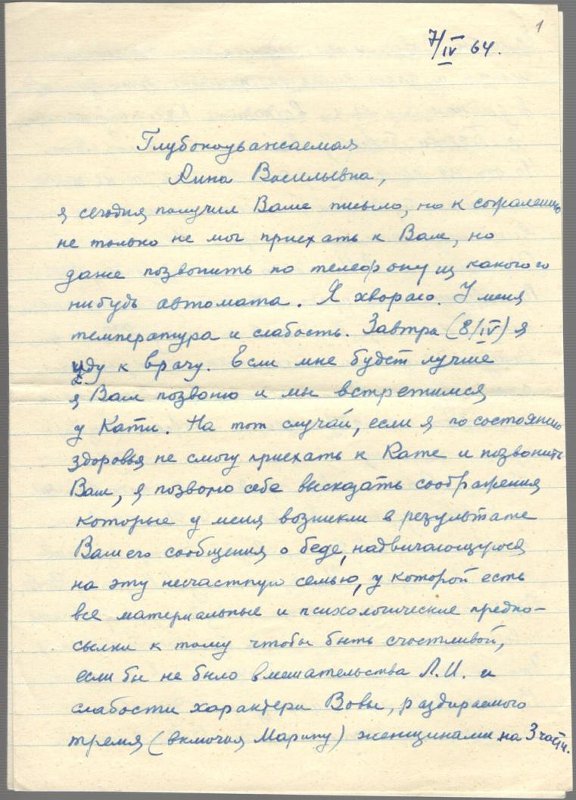 1
7/IV 64.
Глубокоуважаемая
Анна Васильевна,
я сегодня получил Ваше письмо, но к сожалению
не только не мог приехать к Вам, но
даже позвонить по телефону из какого
нибудь автомата. Я хвораю. У меня
температура и слабость. Завтра (8/IV) я
иду к врачу. Если мне будет лучше
я Вам позвоню и мы встретимся
у Кати. На тот случай, если я по состоянию
здоровья не смогу приехать к Кате и позвонить
Вам, я позволю себе высказать соображения
которые у меня возникли в результате
Вашего сообщения о беде, надвигающуюся
на эту несчастную семью, у которой есть
все материальные и психологические предпо-
сылки к тому чтобы быть счастливой,
если бы не было вмешательства Л.И. и
слабости характера Вовы, раздираемого
тремя (включая Марину) женщинами на 3 части.